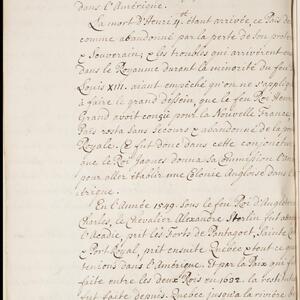 dans l'Amérique.
La mort d'Henri 4e. étant arrivée, ce Païs de
comme abandonné par la perte de son prote
& Souverain; & les troubles qui arrivérent en
dans le Royaume durant la minorité du feu
Louis XIII. aiant empêché qu'on ne s'appliq
à faire le grand dessein, que le feu Roi Hen
Grand avoit conçû pour la Nouvelle France
Païs resta sans secours & abandonné de la pro
Royale. Et fut donc dans cette conjonctur
que le Roi Jaques donna sa Commission à
pour aller établir une Colonie Angloise dans l'
trique.
En l'année 1599. sous le feu Roi d'Angleter
Charles, le Chevalier Alexandre Sterlin fut
l'Acadie, prit les Forts de Pentagoet, Sainte
& Port-Royal, prit ensuite Québec & tout ce q
tenions dans l'Amérique. Et par la Paix qui f
faite entre les deux Rois en 1632. la restitut
fut faite depuis Québec jusqu'à la rivière